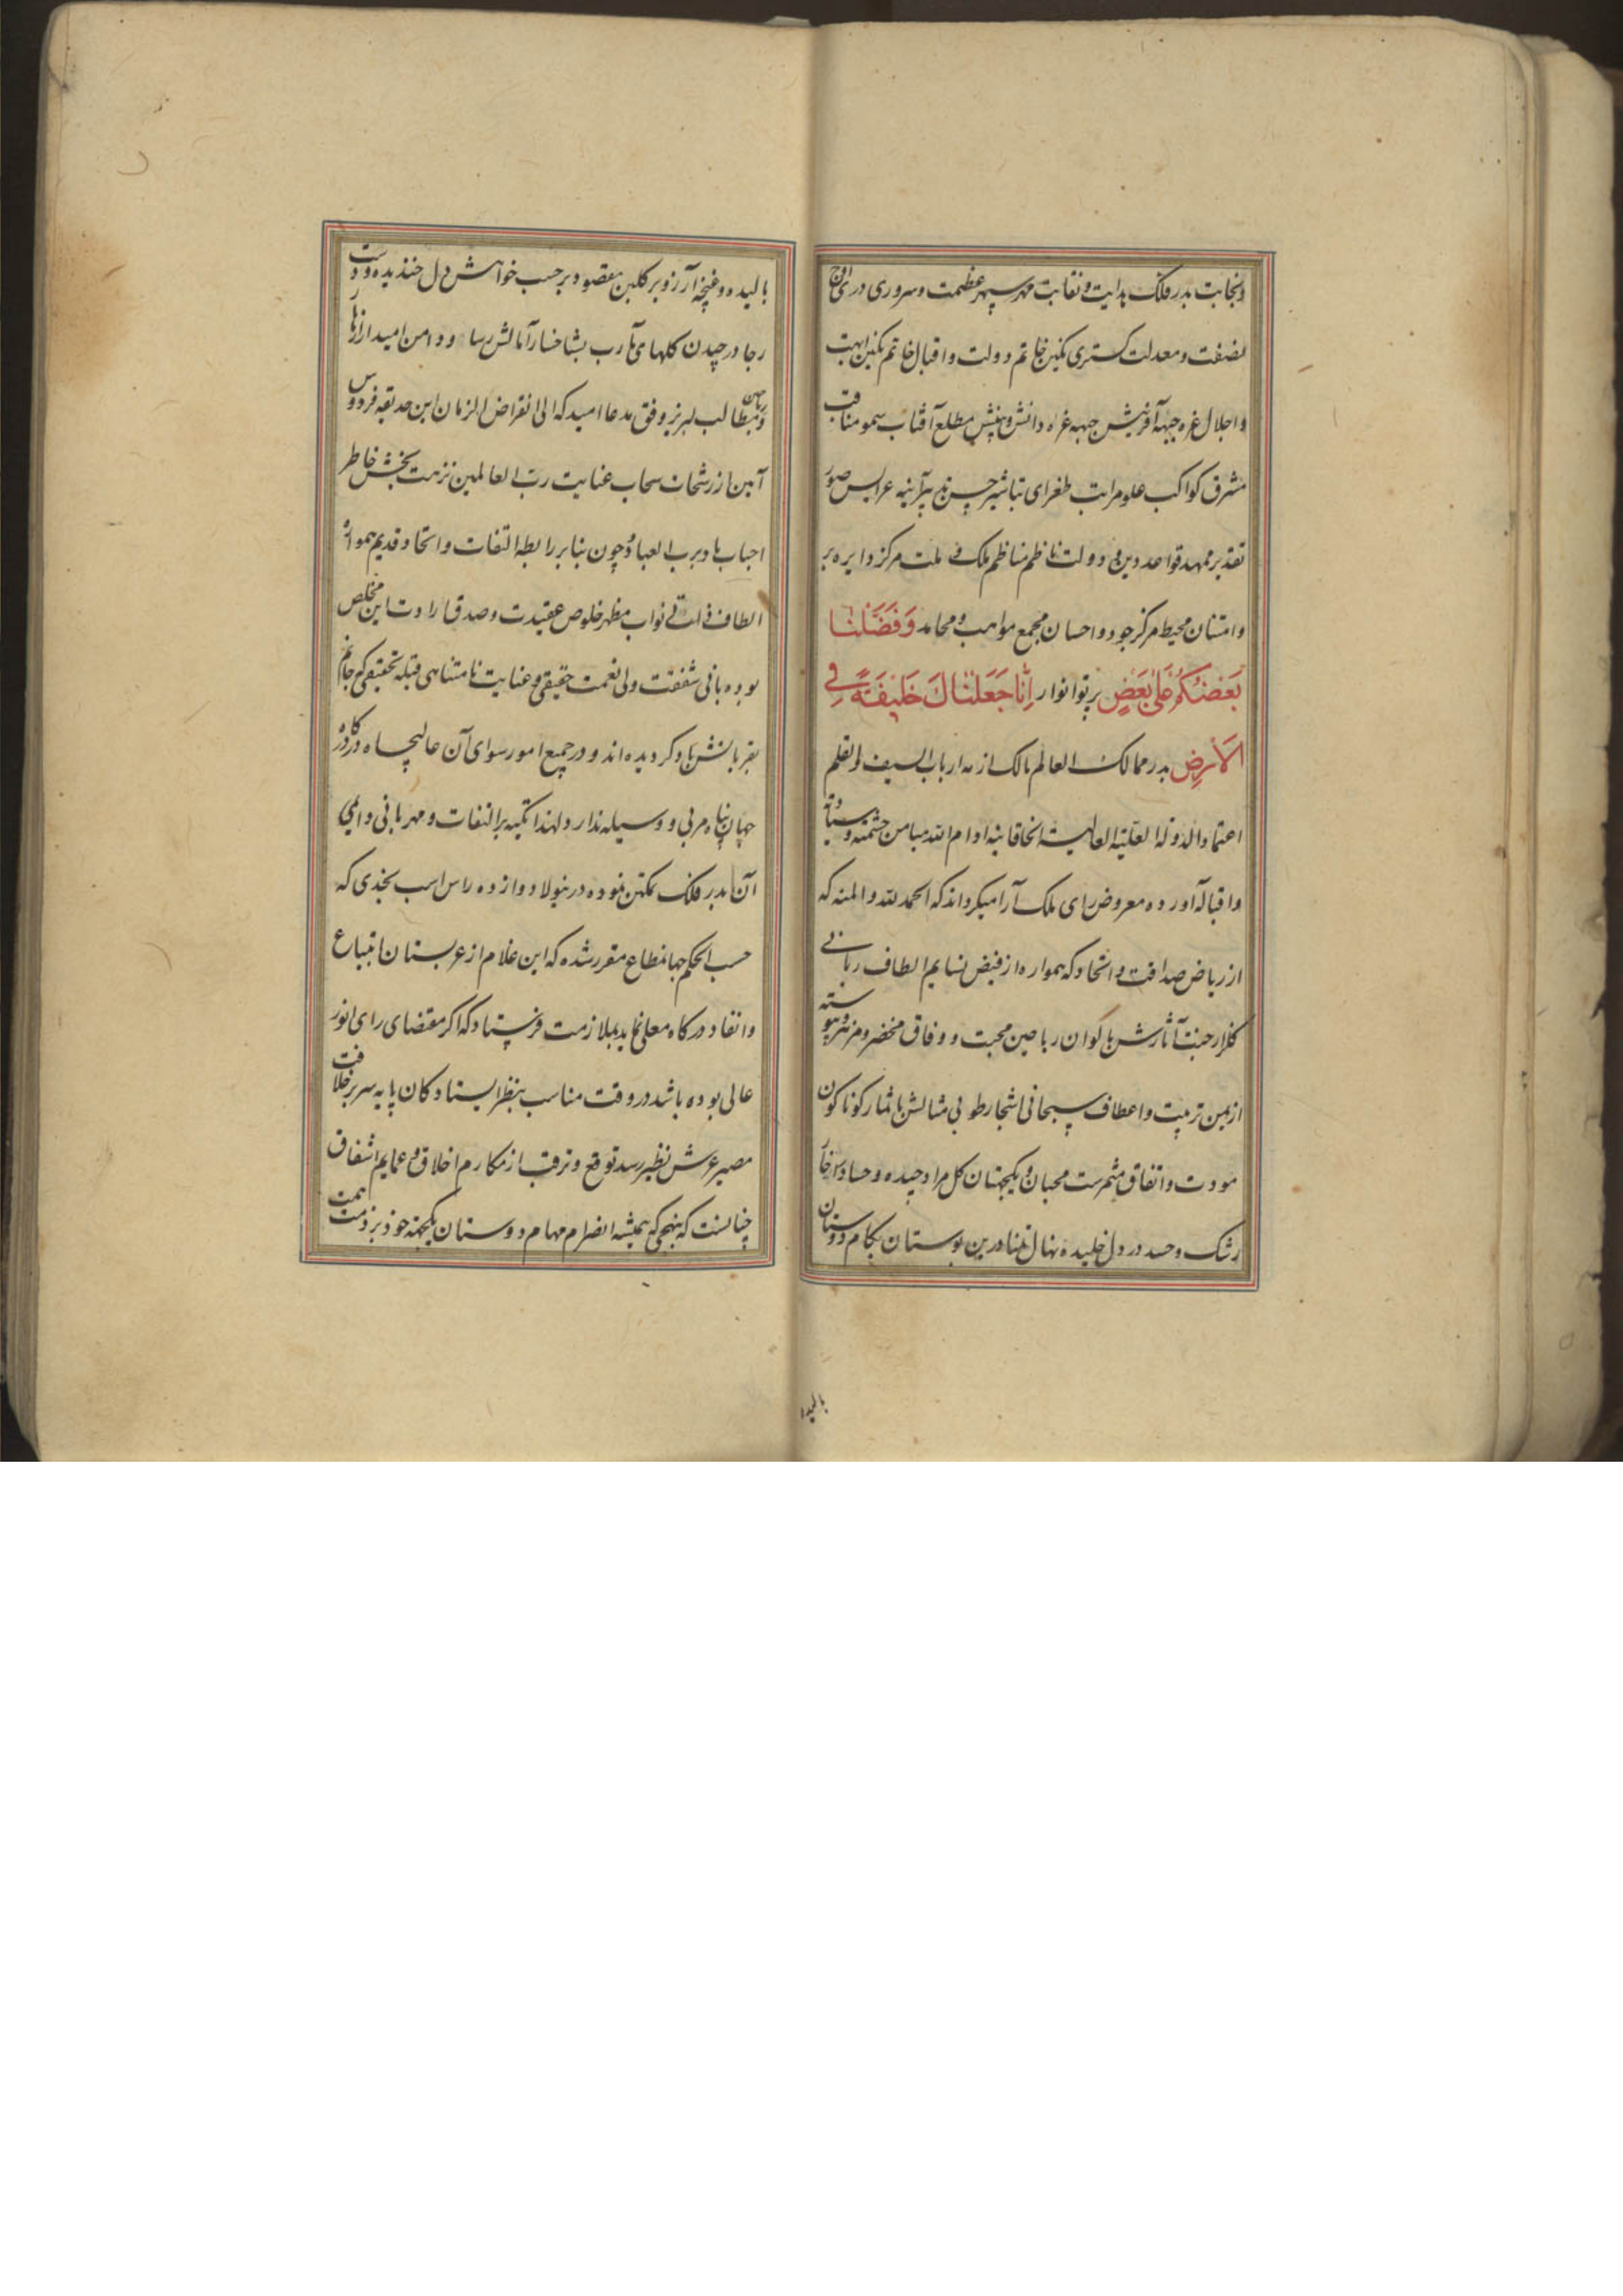 ونجابت بدر فلک هدایت ونقابت مهر سپهر عظمت وسروری دری اوج
نصفت و معدلت کستری نکین خاتم دولت و اقبال خاتم نکین ابهت
و اجلال غره جبهه آفرینش جبهه غره دانش و بینش مطلع آفتاب سمو مناقب
مشرق کواکب علو مراتب طغرای تباشیر حسن تدبیر آینه عرایس صور
تقدیر ممهد قواعد دین و دولت ناظم مناظم ملک و ملت مرکز دایره بر
و امتنان محیط مرکز جود و احسان مجمع مواهب و محامد وَفَضَّلْنَا
بَعْضَكُمْ عَلَىٰ بَعْضٍ پرتو انوار اِنَّا جَعَلْنَاكَ خَلِيفَةً فِي
الْاَرْضِ بدر ممالک العالم مالک ازمه ارباب السیف و القلم
اعتماد الدوله العلیة العالیة الخاقانیه ادام الله میامن حشمته و
و اقباله آورده معروض رای ملک آرا میکرداند که الحمد لله و المنه که
از ریاض صداقت و اتحاد که همواره از فیض نسایم الطاف ربانی
کلزار جنت آثارش بالوان ریاحین محبت و وفاق مخضر و مزهر و پیوسته
از یمن تربیت و اعطاف سبحانی اشجار طوبی مثالش باثمار کوناکون
مودت و اتفاق مثمرست محبان و یکجهتان کل مراد چیده و حساد را خار
رشک و حسد در دل خلیده نهال تمنا درین بوستان بکام دوستان
بالیده
بالیده و غنچه آرزو بر کلبن مقصود بر حسب خواهش دل خندیده و دست
رجا در چیدن کلهای مآرب بشاخسار آمالش رسا و دامن امید از ازهار
و ریاحین مطالب لبریز وفق مدعا امید که الی انقراض الزمان این حدیقه فردوس
آیین از رشحات سحاب عنایت رب العالمین نزهت بخش خاطر
احباب باد برب العباد و چون بنا بر رابطه التفات و اتحاد قدیم همواره
الطاف ذاتی نواب مظهر خلوص عقیدت و صدق ارادت این مخلص
بوده بانی شفقت ولی نعمت حقیقی و عنایت نامتناهی قبله تحقیقی که جانم
بقربانش باد کردیده اند و در جمیع امور سوای آن عالیجاه در کار در
جهان پناه مربی و وسیله ندارد لهذا تکیه بر التفات و مهربانی دایمی
آن بدر فلک تمکن نموده درینولا دوازده راس اسب نجدی که
حسب الحکم جهانمطاع مقرر شده که این غلام از عربستان ابتیاع
و انفاد درکاه معلی نماید بملازمت فرستاد که اکر مقتضای رای انور
عالی بوده باشد در وقت مناسب بنظر ایستادکان پایه سریر خلافت
مصیر عرش نظیر رسد توقع و ترقب از مکارم اخلاق و عمایم اشفاق
چنانست که بنهجی که همیشه انصرام مهام دوستان یکجهته خود بر ذمت همت